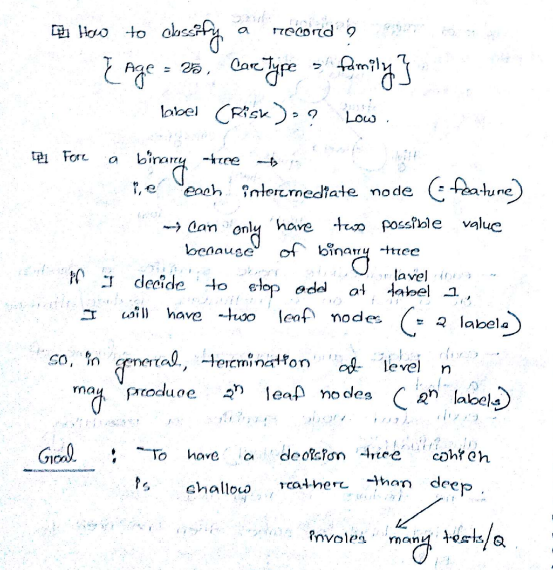 How to classify a record ?
{ Age = 25, Car Type = family }
label (Risk) = ? Low .
For a binary tree →
i,e each intermediate node (= feature)
→ Can only have two possible value
because of binary tree
If I decide to stop add at label level 1,
I will have two leaf nodes (= 2 labels)
so, in general, termination at level n
may produce 2ⁿ leaf nodes ( 2ⁿ labels)
Goal : To have a decision tree which
is shallow rather than deep.
involes many tests/Q